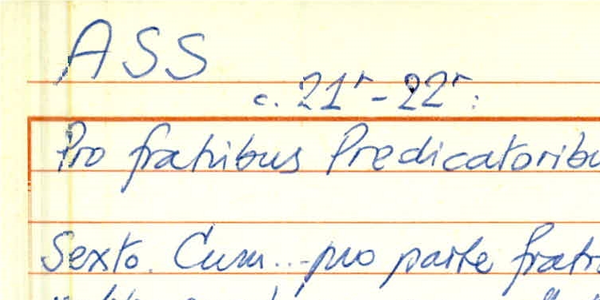 ASS
c. 21r - 22r:
Pro fratribus Predicatoribu
Sexto. Cum... pro parte fratr